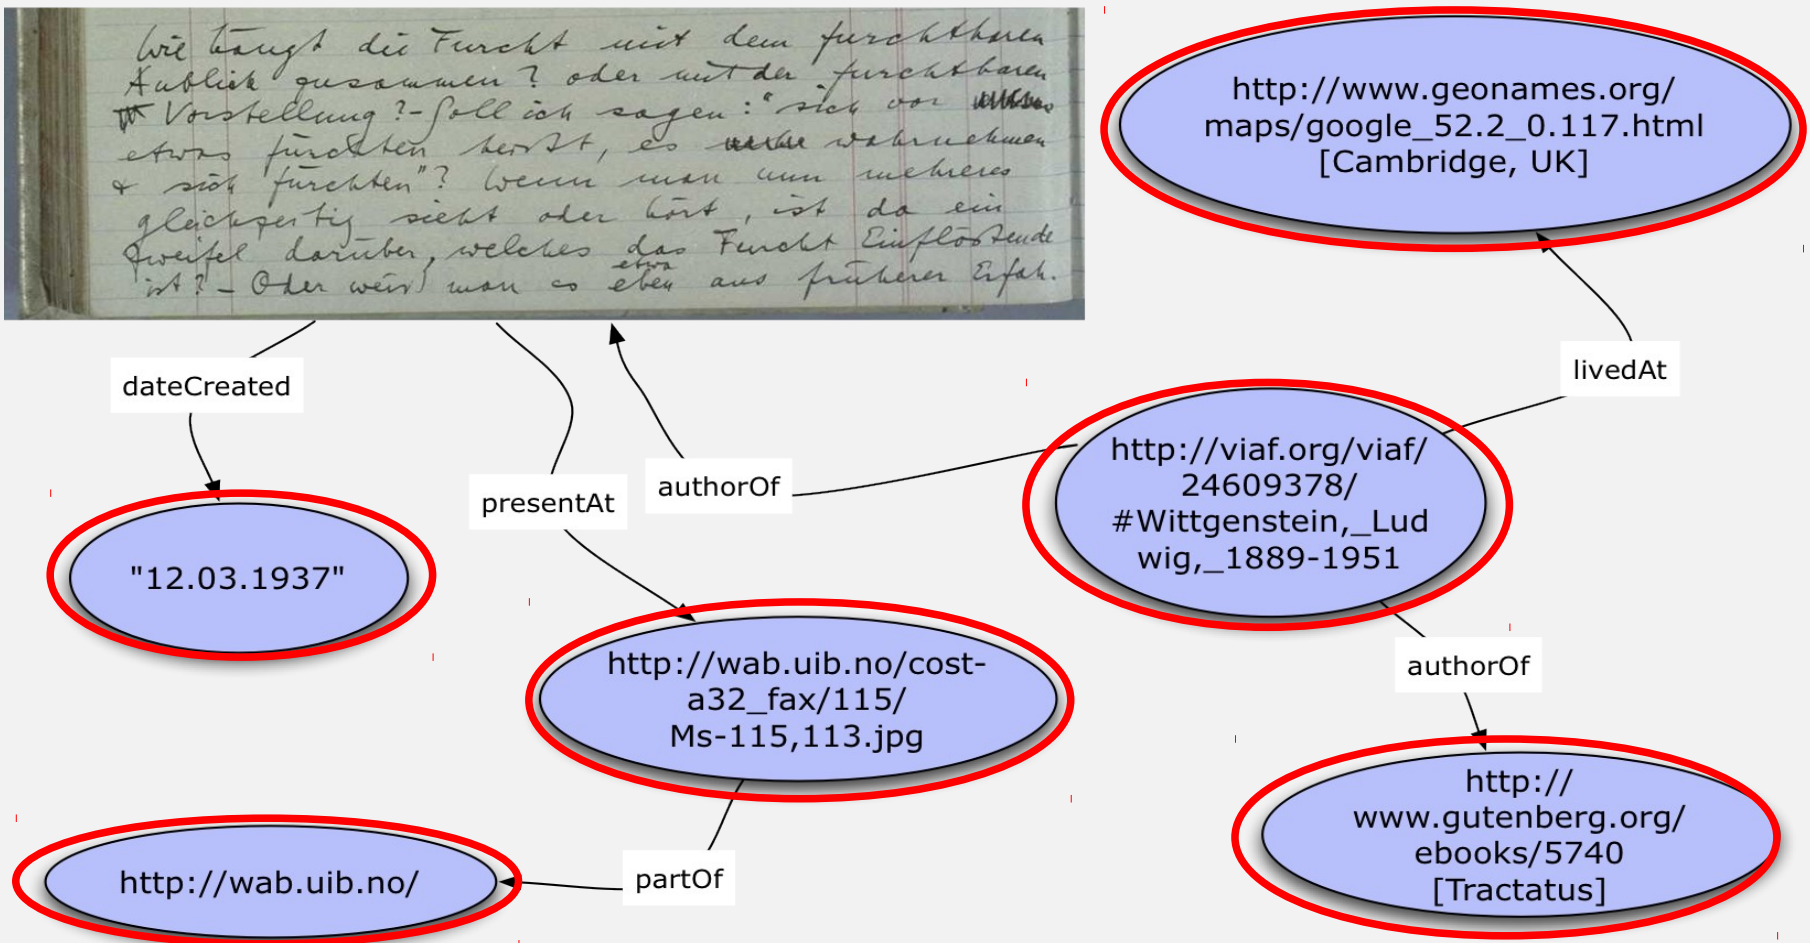 Wie hängt die Furcht mit dem furchtbaren
Anblick zusammen? oder mit der furchtbaren
Vorstellung? - Soll ich sagen: "sich vor
etwas fürchten heißt, es wahrnehmen
& sich fürchten"? Wenn man nun mehreres
gleichzeitig sieht oder hört, ist da ein
Zweifel darüber, welches das Furcht Einflößende
etwa
ist? - Oder weiß man es eben aus früherer Erfah.
http://www.geonames.org/
maps/google_52.2_0.117.html
[Cambridge, UK]
livedAt
dateCreated
presentAt
authorOf
http://viaf.org/viaf/
24609378/
#Wittgenstein,_Lud
wig,_1889-1951
"12.03.1937"
http://wab.uib.no/cost-
a32_fax/115/
Ms-115,113.jpg
authorOf
http://
www.gutenberg.org/
ebooks/5740
[Tractatus]
partOf
http://wab.uib.no/